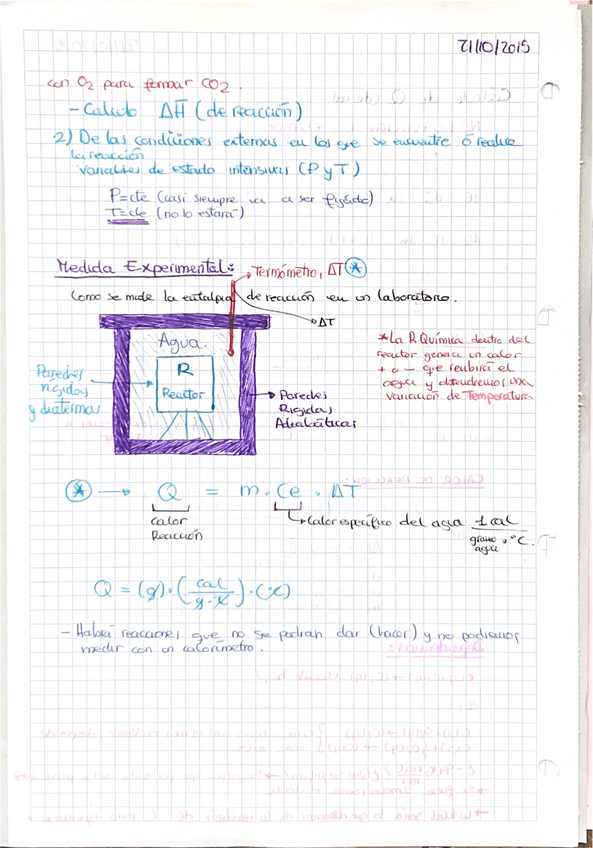 21/10/2015
con O₂ para formar CO₂.
- Calculo ΔH (de reacción)
2) De las condiciones externas en las que se encuentre ó realice
la reacción
variables de estado intensivas (P y T)
P=cte (casi siempre va a ser fijado)
T=cte (no lo estará)
Medida Experimental:
Termómetro, ΔT *
Como se mide la entalpia de reacción en un laboratorio.
ΔT
Agua.
R
Reactor
Paredes
rígidas
y diatermas
Paredes
Rigidas
Adiabáticas
*La R Química dentro del
reactor genera un calor
+ o - que recibirá el
agua y obtendremos una
variación de Temperatura
* → Q = m · Ce · ΔT
calor
Reacción
Calor específico del agua 1 cal
gramo · °C.
agua
Q = (g) · (cal / g · °C) · (°C)
- Habrá reacciones que no se podran dar (hacer) y no podremos
medir con un calorímetro.